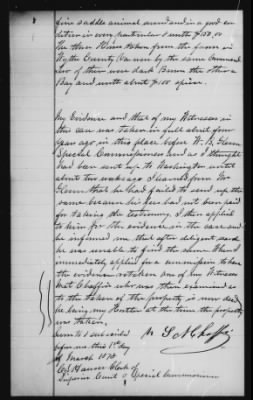 fine saddle animal sound and in a good con
dition in every particular & worth $150, or
the other Horse taken from the farm in
Wythe County Va were by the same command
two of them were dark Brown the other a
Bay and worth about $100 apiece.
My Evidence and that of my Witnesses in
this case was taken in full about four
years ago in this place before W. B. Glenn
Special Commissioner and as I thought
had been sent up to Washington until
about two weeks ago I learned from Mr
Glenn that he had failed to send up the
same because his fees had not been paid
for taking the testimony. I then applied
to him for the evidence in the case and
he informed me that after diligent search
he was unable to find the same and I
immediately applied for a commission to have
the evidence retaken one of my Witnesses
that Chaffin who was then examined as
to the taken of the property is now dead
he being my Renter at the time the property
was taken.
Sworn to & subscribed
before me this 15th day
of March 1878
Clerk of
Superior Court & Special Commissioner